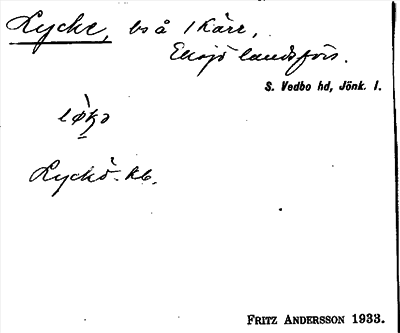 Lycke, bs å 1 Kärr,
Eksjö landsförs.
S. Vedbo hd, Jönk. l.
Lyckö. kb.
FRITZ ANDERSSON 1933.